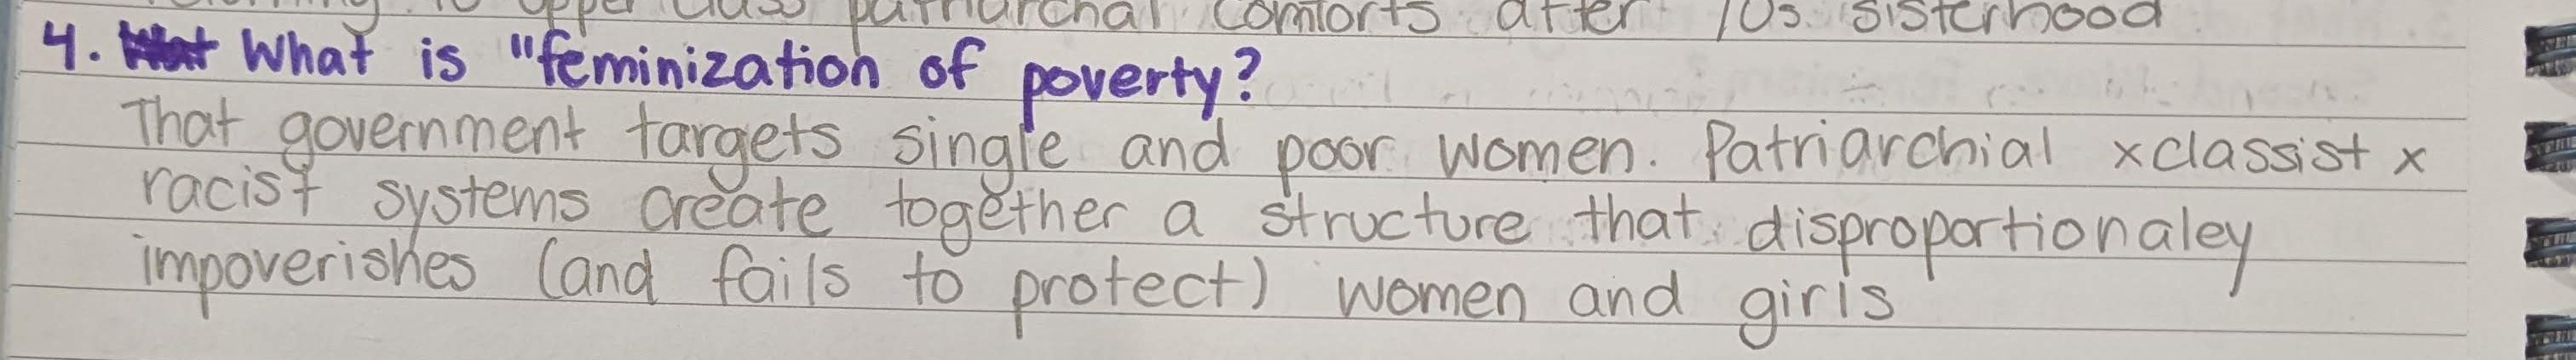 to upper class patriarchal comforts after 70s sisterhood
4. What is "feminization of poverty?
That government targets single and poor women. Patriarchial x classist x
racist systems create together a structure that disproportionaley
impoverishes (and fails to protect) women and girls